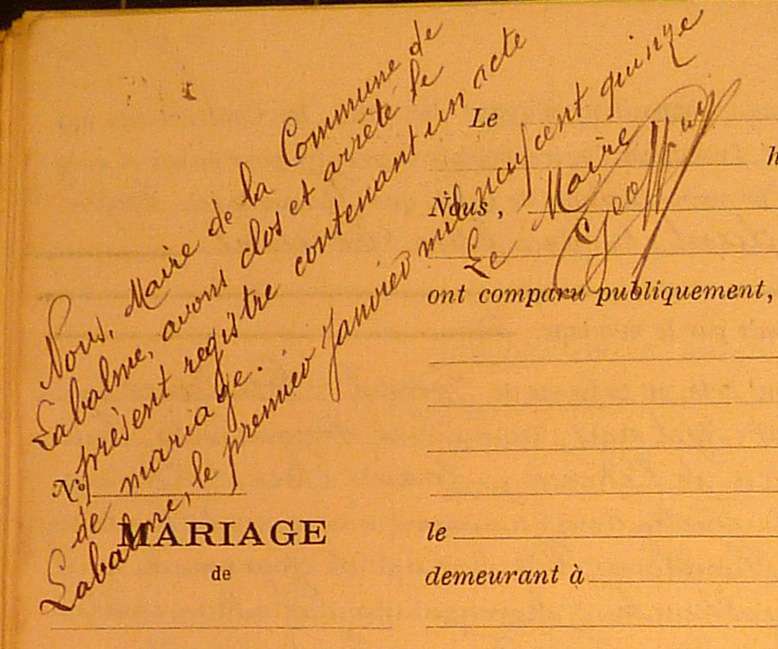 Nous, Maire de la Commune de
Labalme, avons clos et arrêté le
présent registre contenant un acte
de mariage.
Labalme, le premier Janvier mil neuf cent quinze
Le Maire
Geoffray
Le
h
Nous,
ont comparu publiquement,
No
MARIAGE
de
le
demeurant à